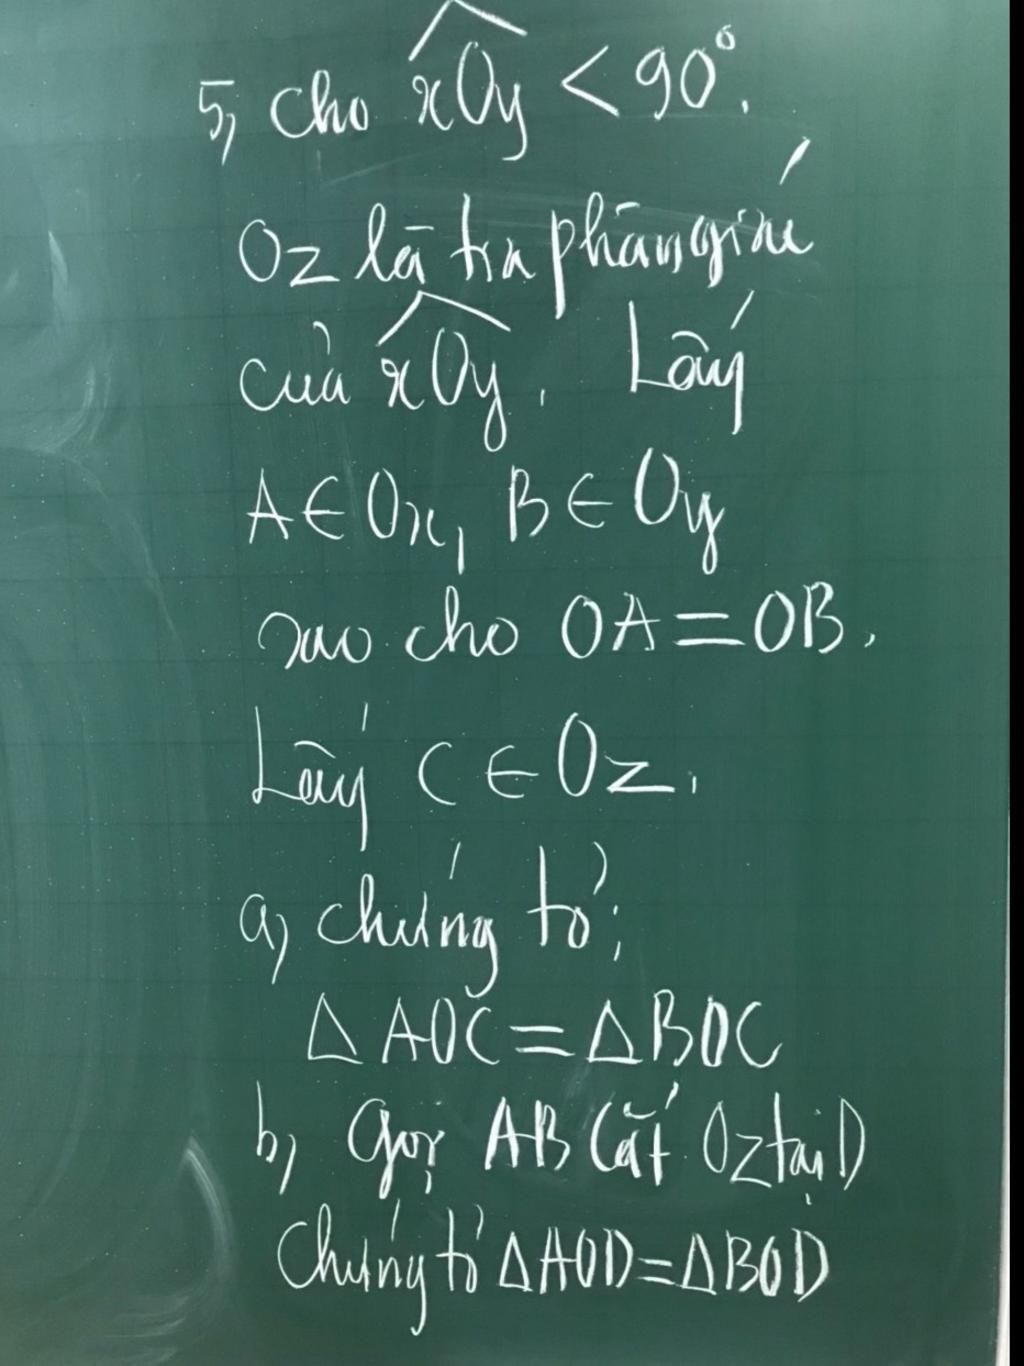 5, cho xOy < 90°.
Oz là tia phân giác
của xOy. Lấy
A ∈ Ox, B ∈ Oy
sao cho OA = OB.
Lấy C ∈ Oz.
a, chứng tỏ:
△ AOC = △ BOC
b, Gọi AB cắt Oz tại D
Chứng tỏ △AOD = △BOD